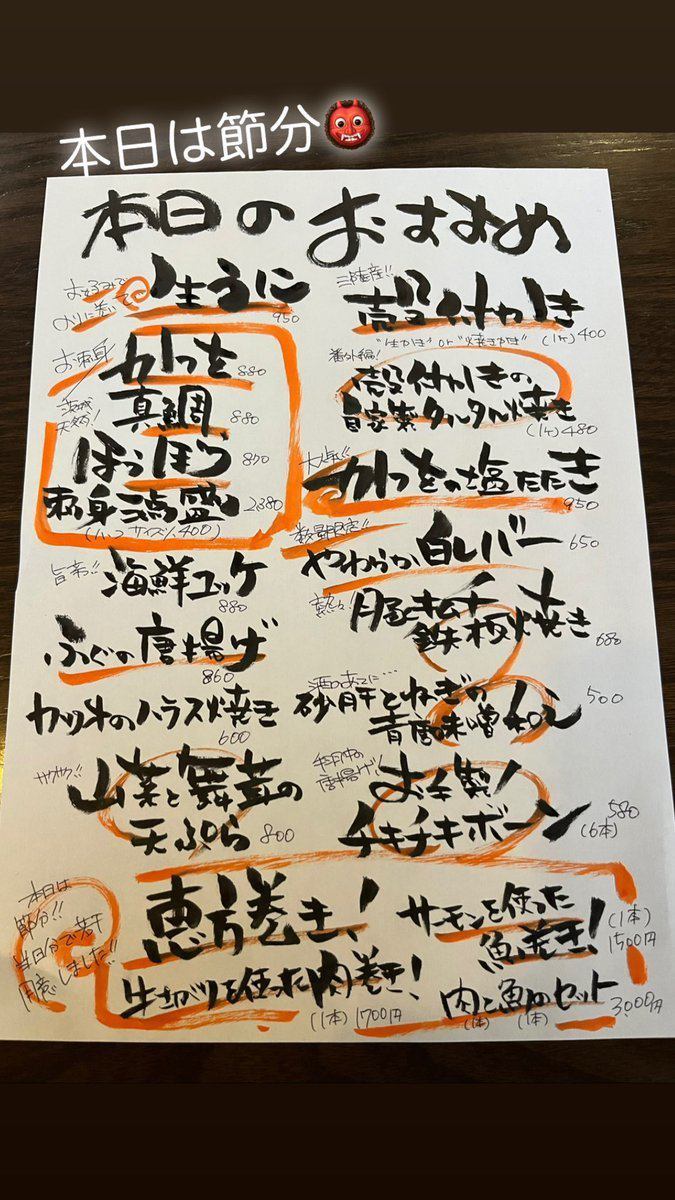 本日は節分👹
本日のおすすめ
のりに巻いて
生うに
950
お刺身
かつを 880
茨城
天然!
真鯛 880
ほうぼう 870
刺身三点盛り 2380
(ハーフサイズ1,400)
旨辛!!
海鮮ユッケ
880
ふぐの唐揚げ
860
カツオのハラス焼き
600
サクサク!!
山菜と舞茸の
天ぷら 800
三陸産!!
殻付かき
"生かき" or "焼きかき" (1ヶ) 400
番外編!
殻付かきの
自家製タルタル焼き
(1ヶ) 480
大人気!!
かつをの塩たたき
950
数量限定!!
やわらか白レバー 650
熱々!
豚キムチ
鉄板焼き
680
酒のあてに…
砂肝とねぎの
青唐味噌和え
500
お手製!
チキチキボーン
580
(6本)
本日は
節分!!
当日分で若干
用意しました!!
恵方巻き!
サーモンを使った
魚巻き!
(1本)
1500円
牛サガリを使った肉巻き!
(1本) 1700円
肉と魚のセット
(1本) (1本)
3,000円